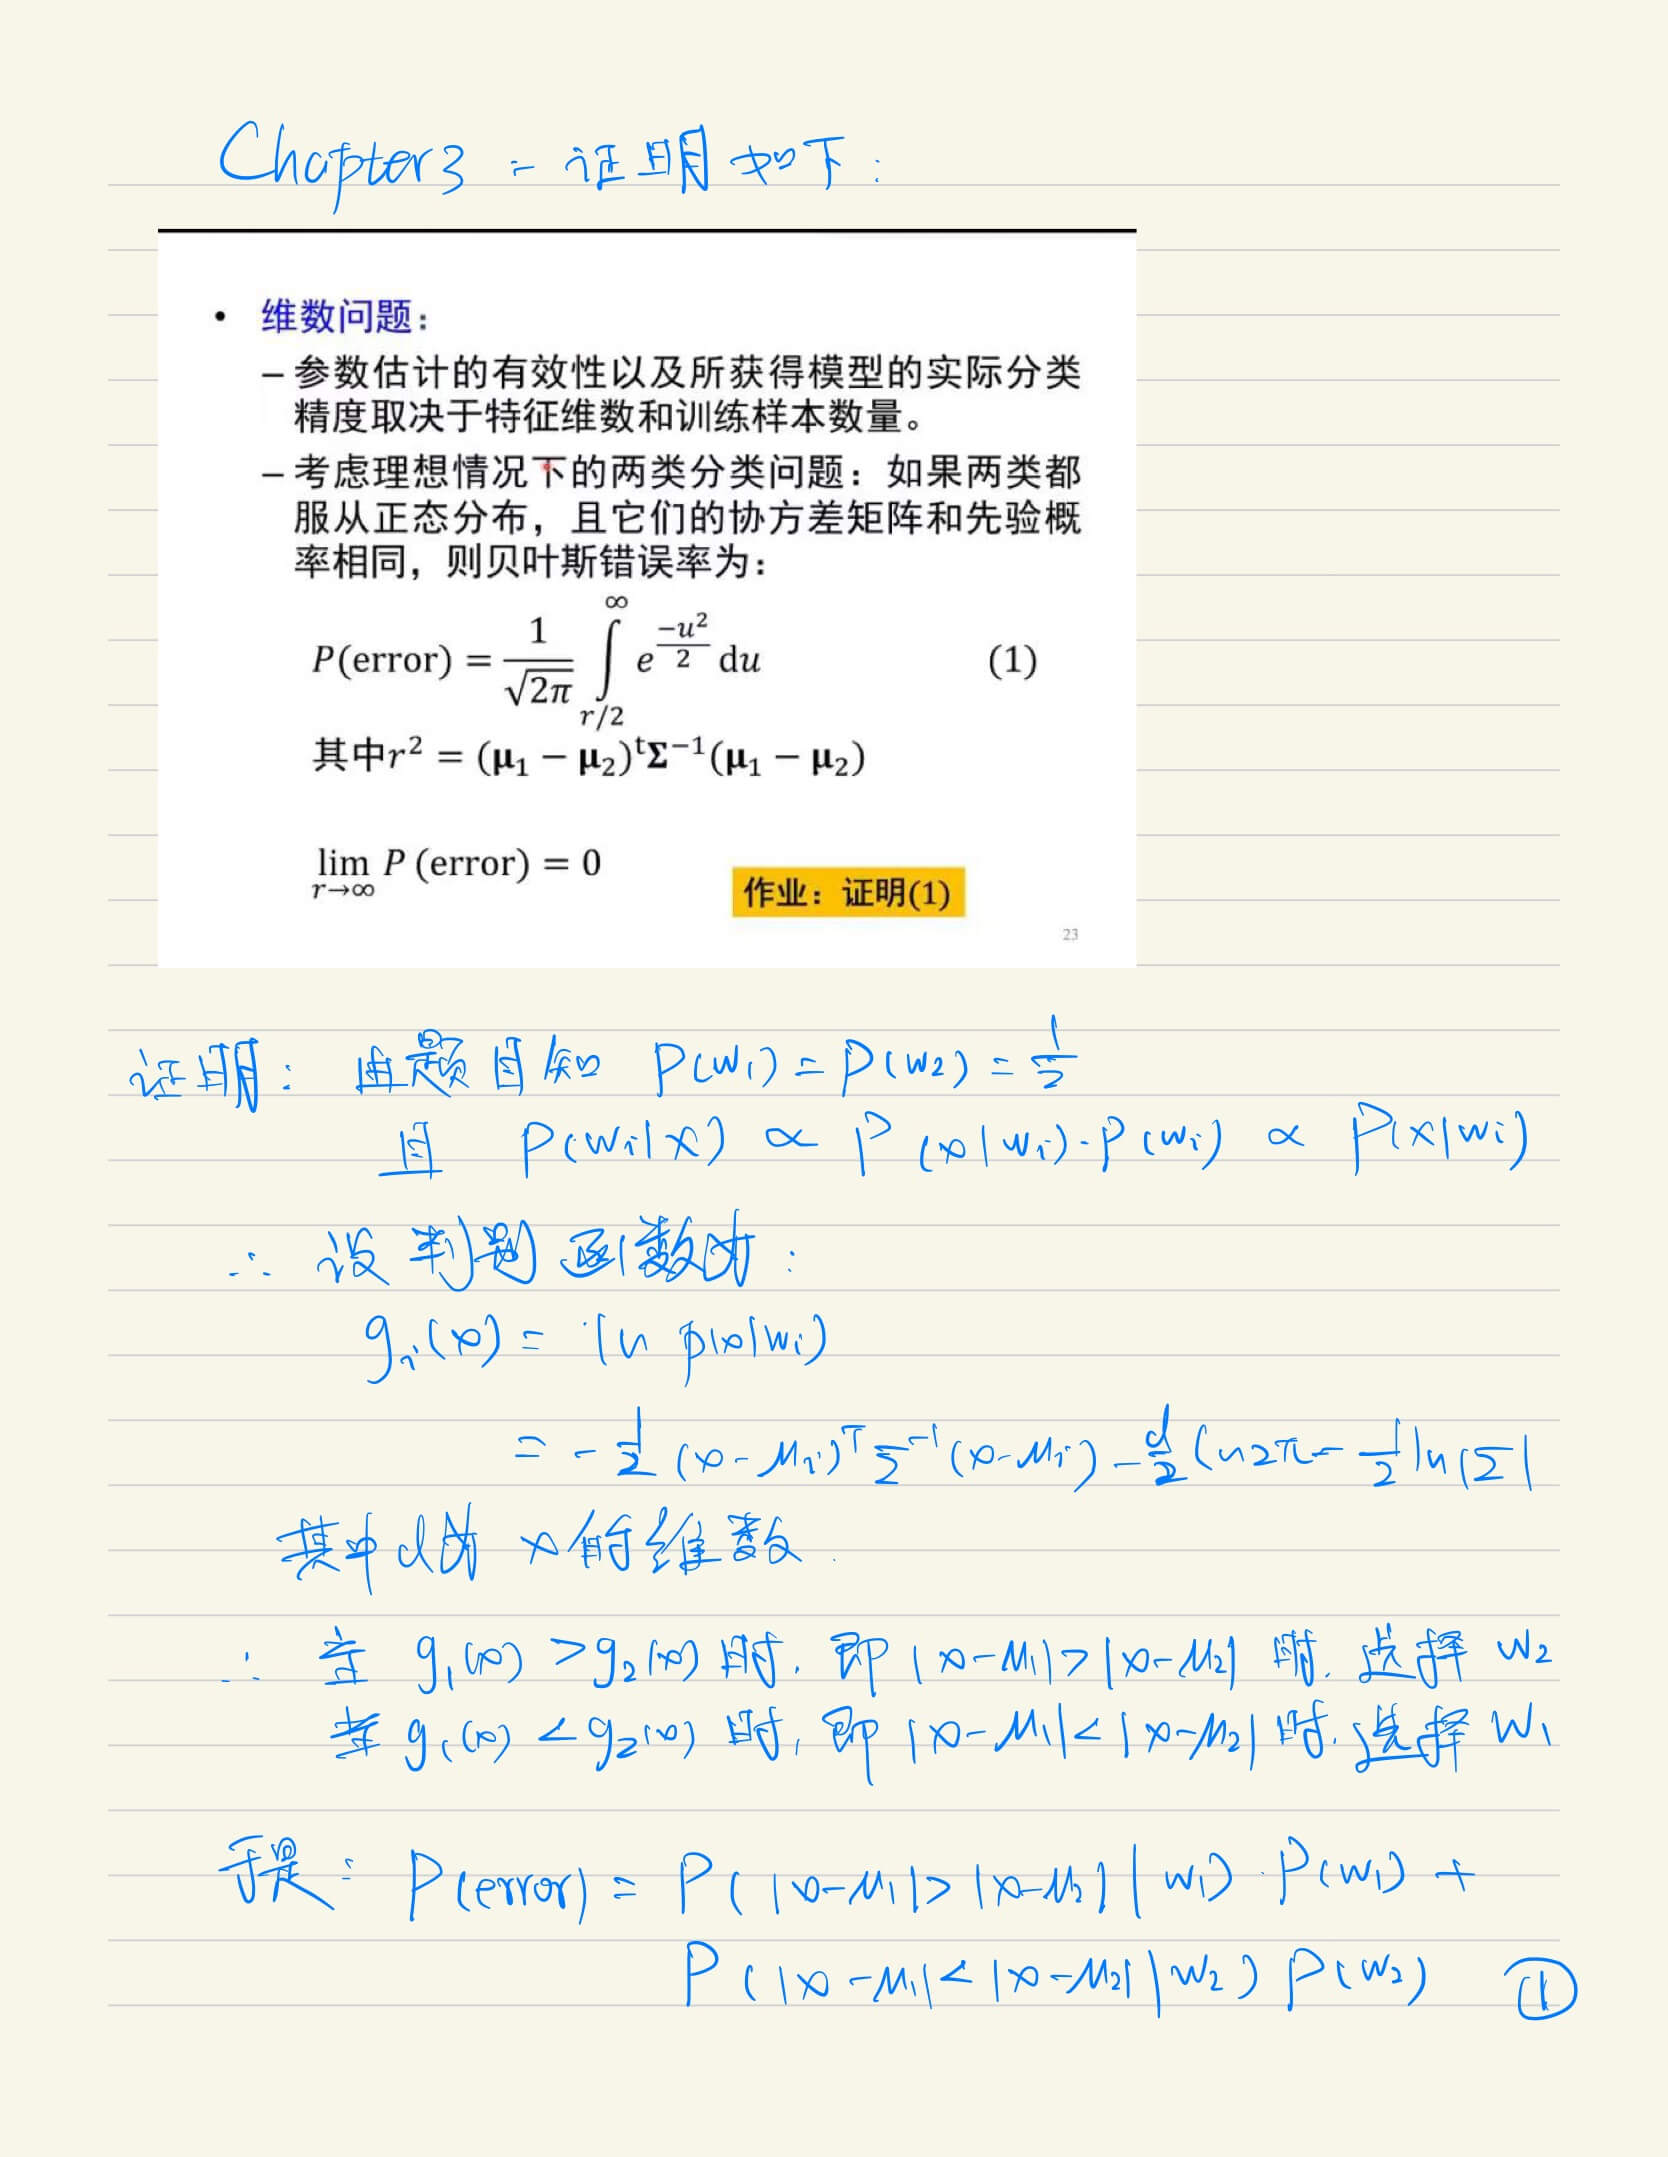 Chapter3 : 证明如下:
• 维数问题：
– 参数估计的有效性以及所获得模型的实际分类
精度取决于特征维数和训练样本数量。
– 考虑理想情况下的两类分类问题：如果两类都
服从正态分布，且它们的协方差矩阵和先验概
率相同，则贝叶斯错误率为：
P(error) = \frac{1}{\sqrt{2π}} \int_{r/2}^{∞} e^{\frac{-u^2}{2}} du (1)
其中r² = (μ₁ − μ₂)ᵗΣ⁻¹(μ₁ − μ₂)
lim_{r→∞} P (error) = 0
作业：证明(1)
23
证明: 由题目知 P(w₁) = P(w₂) = 1/2
且 P(wᵢ|x) ∝ P(x|wᵢ)·P(wᵢ) ∝ P(x|wᵢ)
∴ 设判别函数为:
gᵢ(x) = ln p(x|wᵢ)
= -1/2 (x-μᵢ)ᵀΣ⁻¹(x-μᵢ) - d/2 ln2π - 1/2 ln|Σ|
其中d为x的维数.
∴ 当 g₁(x) > g₂(x) 时, 即 |x-μ₁| > |x-μ₂| 时, 选择 w₂
当 g₁(x) < g₂(x) 时, 即 |x-μ₁| < |x-μ₂| 时, 选择 w₁
于是: P(error) = P(|x-μ₁| > |x-μ₂| | w₁)·P(w₁) +
P(|x-μ₁| < |x-μ₂| | w₂) P(w₂) ①